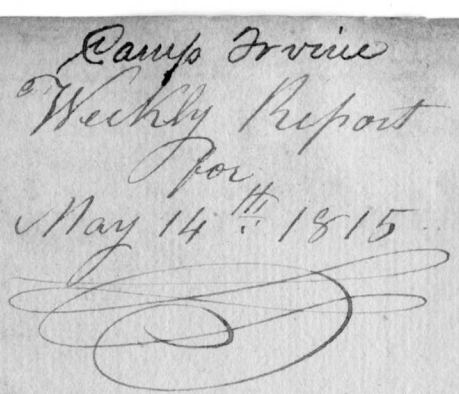 Camp Irvine
Weekly Report
for
May 14th 1815